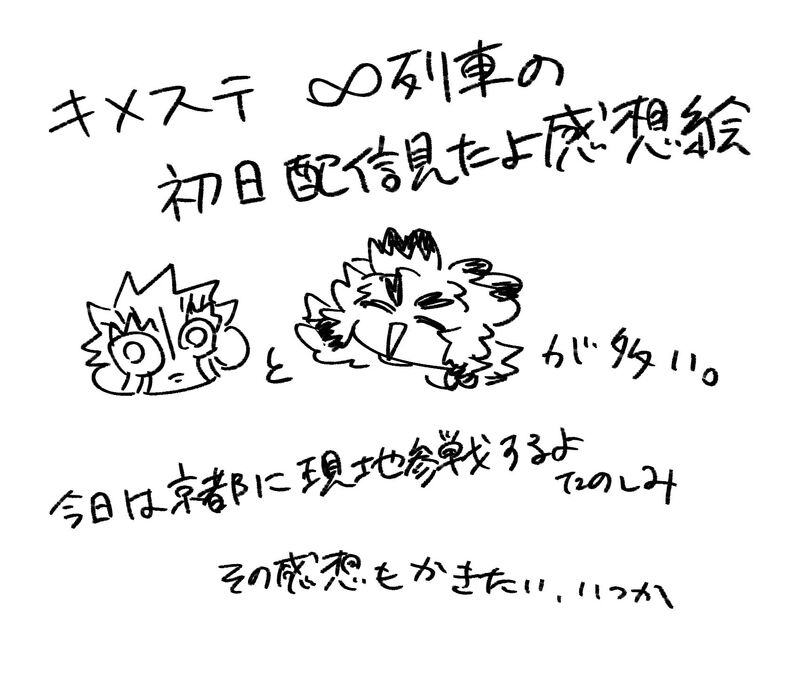 キメステ ∞列車の
初日配信見たよ感想絵
と が多い。
今日は京都に現地参戦するよ
たのしみ
その感想もかきたい、いつか